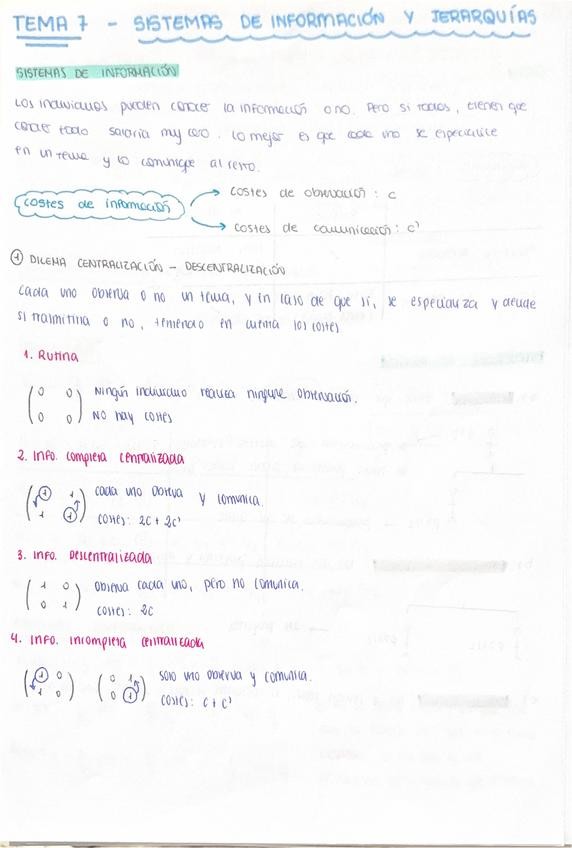 TEMA 7 - SISTEMAS DE INFORMACIÓN Y JERARQUÍAS
SISTEMAS DE INFORMACIÓN
Los individuos pueden conocer la información o no. Pero si todos, tienen que
conocer todo saldría muy caro. Lo mejor es que cada uno se especialice
en un tema y lo comunique al resto.
costes de información
→ costes de observación: c
→ costes de comunicación: c'
1 DILEMA CENTRALIZACIÓN - DESCENTRALIZACIÓN
Cada uno observa o no un tema, y en caso de que sí, se especializa y decide
si trasmitirla o no, teniendo en cuenta los costes
1. Rutina
0 0 Ningún individuo realiza ninguna observación.
0 0 No hay costes
2. Info. completa centralizada
1 1 cada uno observa y comunica.
1 1 costes: 2c + 2c'
3. Info. Descentralizada
1 0 Observa cada uno, pero no comunica.
0 1 costes: 2c
4. Info. incompleta centralizada
1 0 0 1 solo uno observa y comunica.
1 0 0 1 costes: c + c'